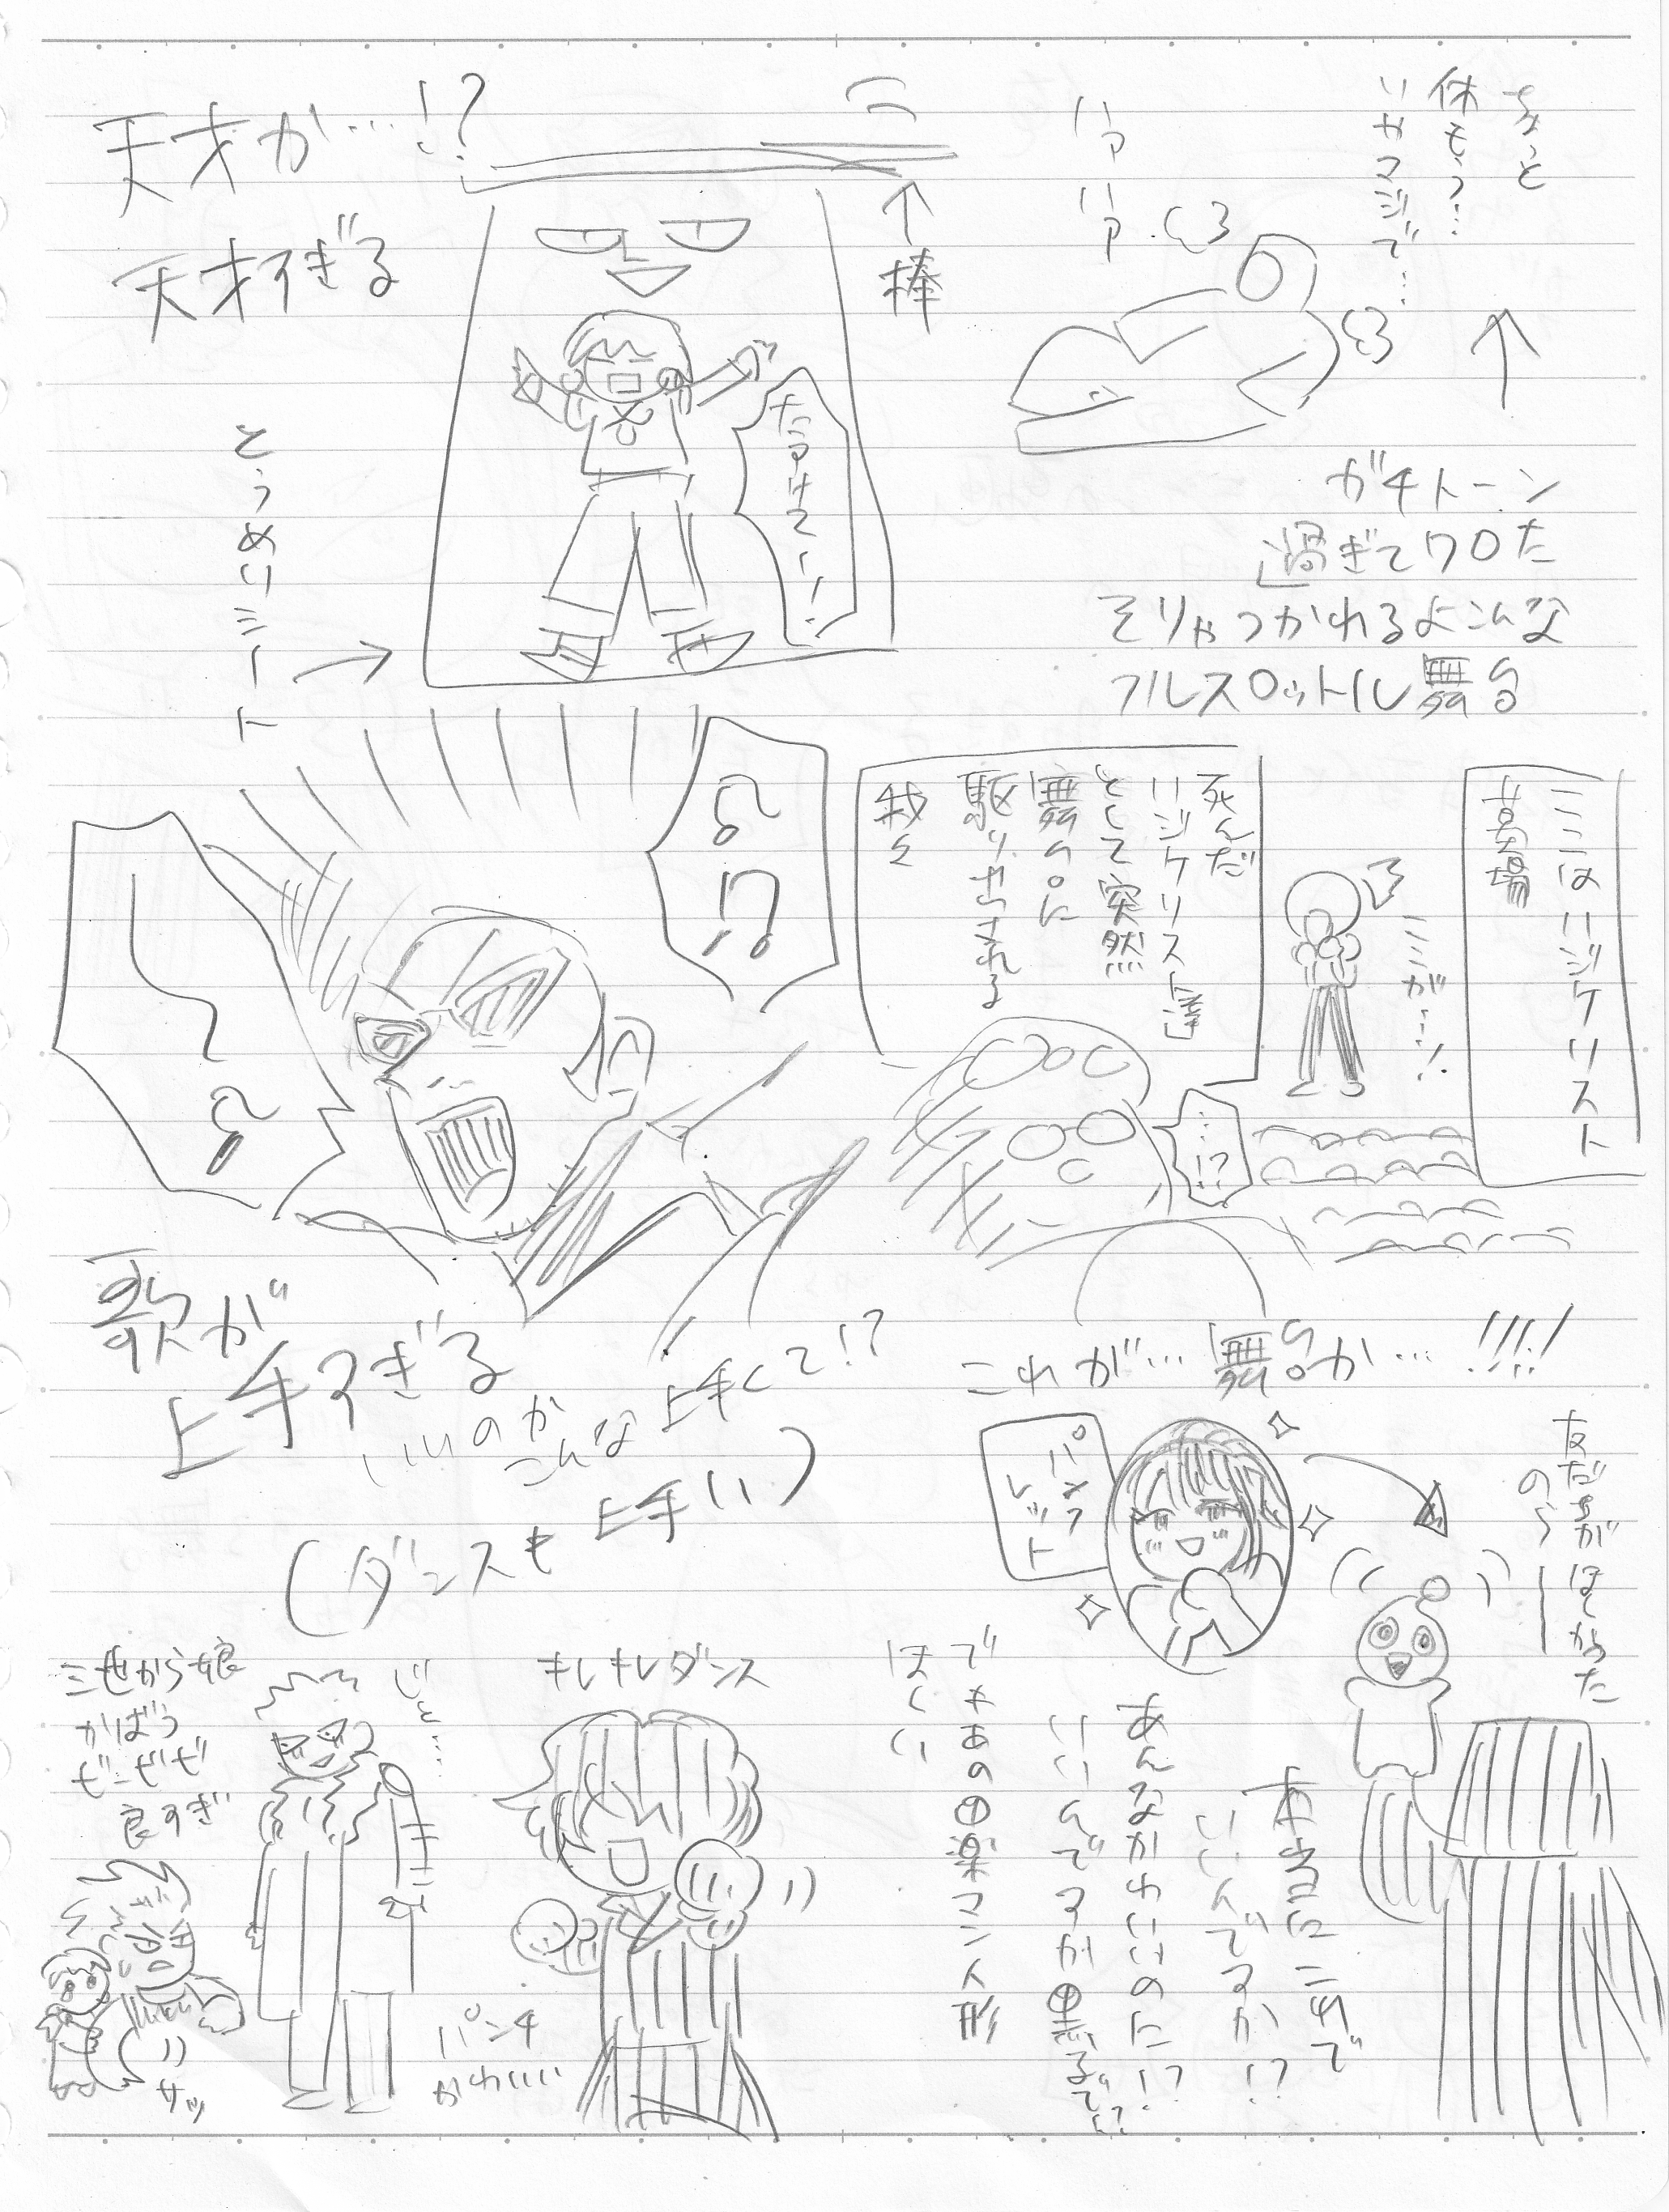 ちょっと
休もう…
いやマジで…
ハァ
ハァ
ガチトーン
過ぎてワロた
そりゃつかれるよこんな
フルスロットル舞台
↑棒
天才か…!?
天才すぎる
たすけてーー!!
とうめいシート
ここはハジケリスト
墓場
ミミが…!!
死んだ
ハジケリスト[霊]
として突然
舞台に
駆り出される
我々
…!?
これが…舞台か…!!!!
♪
歌が
上手すぎる
いいのか
こんな
上手くて!?
(ダンスも上手い)
友だちがほしかった
のらー
パンフ
レット
本当にこれで
いいんですか!?
あんなかわいいのに!?
いいんですか
でもあの田楽マン人形
ほしい
キレキレダンス
パンチ
かわいい
じと…
三世から娘
かばう
ビービビ
良すぎ
サッ